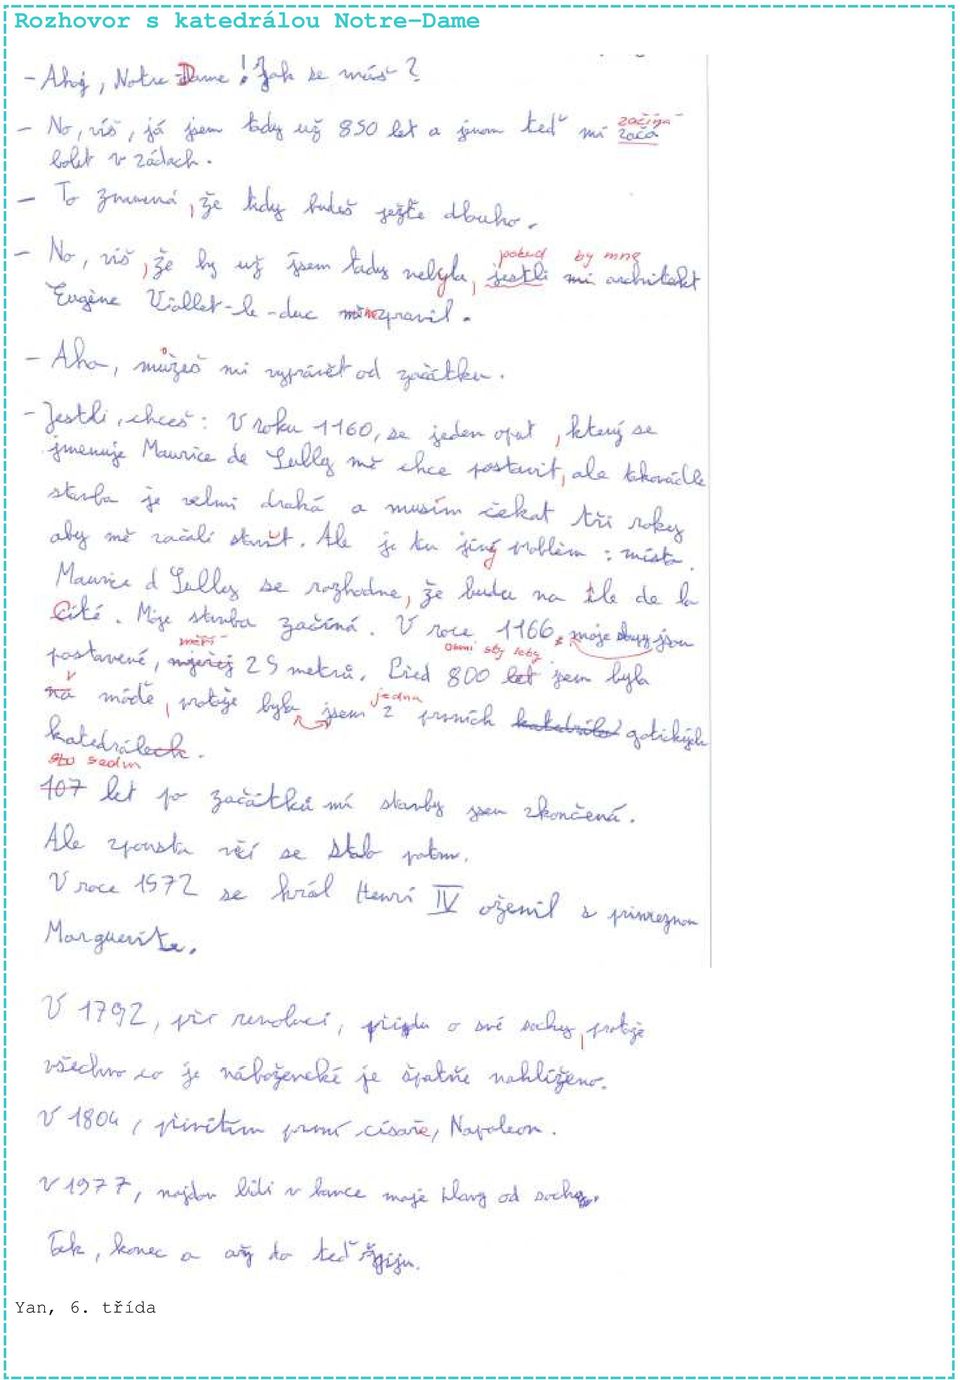 Rozhovor s katedrálou Notre-Dame
- Ahoj, Notre-Dame! Jak se máš?
začíná
- No, víš, já jsem tady už 850 let a jenom teď mi začá
bolet v zádach.
- To znamená, že tady budeš ježte dlouho.
pokud by mne
- No, víš, že by už jsem tady nebyla, jestli mi architekt
Eugène Viollet-le-duc nezpravil.
- Aha, můžeš mi vyprávět od začátku.
- Jestli, chceš: V roku 1160, se jeden opat, který se
jmenuje Maurice de Sulley mě chce postavit, ale takovádle
stavba je velmi drahá a musím čekat tři roky
aby mě začali stavět. Ale je tu jiný problém: místa.
Maurice d Sulley se rozhodne, že budu na île de la
Cité. Moje stavba začíná. V roce 1166, moje jsou
měří
postavené, 25 metrů. Před 800 let jsem byla
v jedna
na módě, protože byla jsem z prvních gotických
katedrálech.
sto sedm
107 let po začátků mí stavby jsem zkončená.
Ale spousta věcí se stalo potom.
V roce 1572 se král Henri IV oženil s princeznou
Marguerite.
V 1792, při revoluci, přijdu o své sochy, protože
všechno co je náboženské je špatňe nahlíženo.
V 1804, přivítám první císaře, Napoleon.
V 1977, najdou lidi v bance moje hlavy od sochy.
Tak, konec a až do teď žiju.
Yan, 6. třída